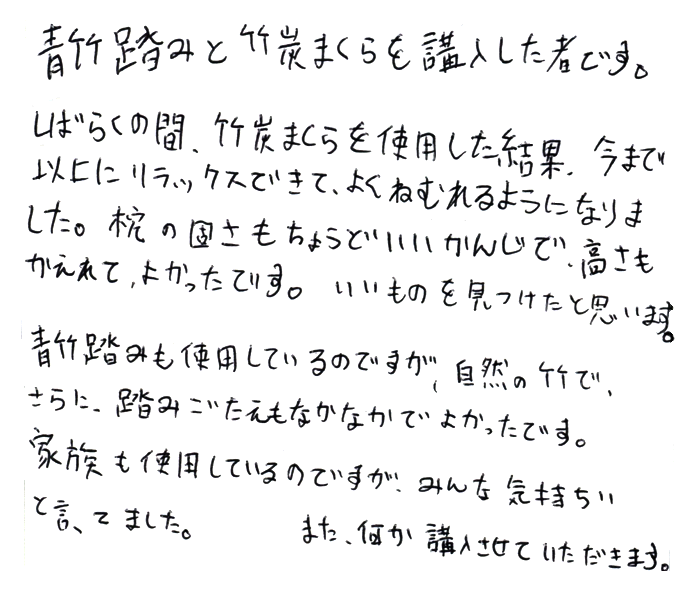 青竹踏みと竹炭まくらを講入した者です。
しばらくの間、竹炭まくらを使用した結果、今まで
以上にリラックスできて、よくねむれるようになりま
した。枕の固さもちょうどいいかんじで、高さも
かえれて、よかったです。いいものを見つけたと思います。
青竹踏みも使用しているのですが、自然の竹で、
さらに、踏みごたえもなかなかでよかったです。
家族も使用しているのですが、みんな気持ちいい
と言ってました。 また、何か講入させていただきます。